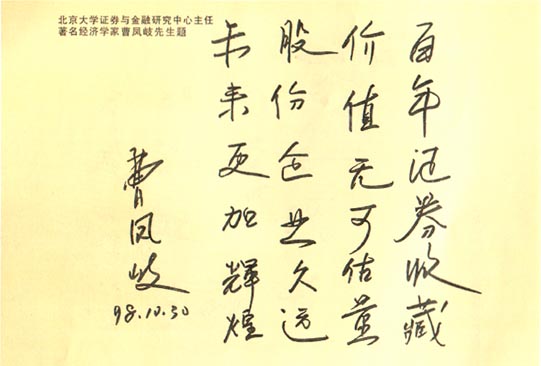 北京大学证券与金融研究中心主任
著名经济学家曹凤岐先生题
百年证券收藏
价值无可估量
股份企业久远
未来更加辉煌
曹凤岐
98.10.30